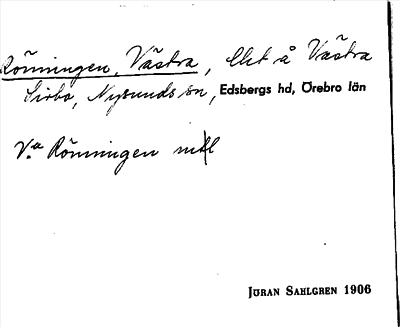 Rönningen, Västra, lht å Västra
Sirbo, Nysunds sn, Edsbergs hd, Örebro län
V.a Rönningen
JÖRAN SAHLGREN 1906